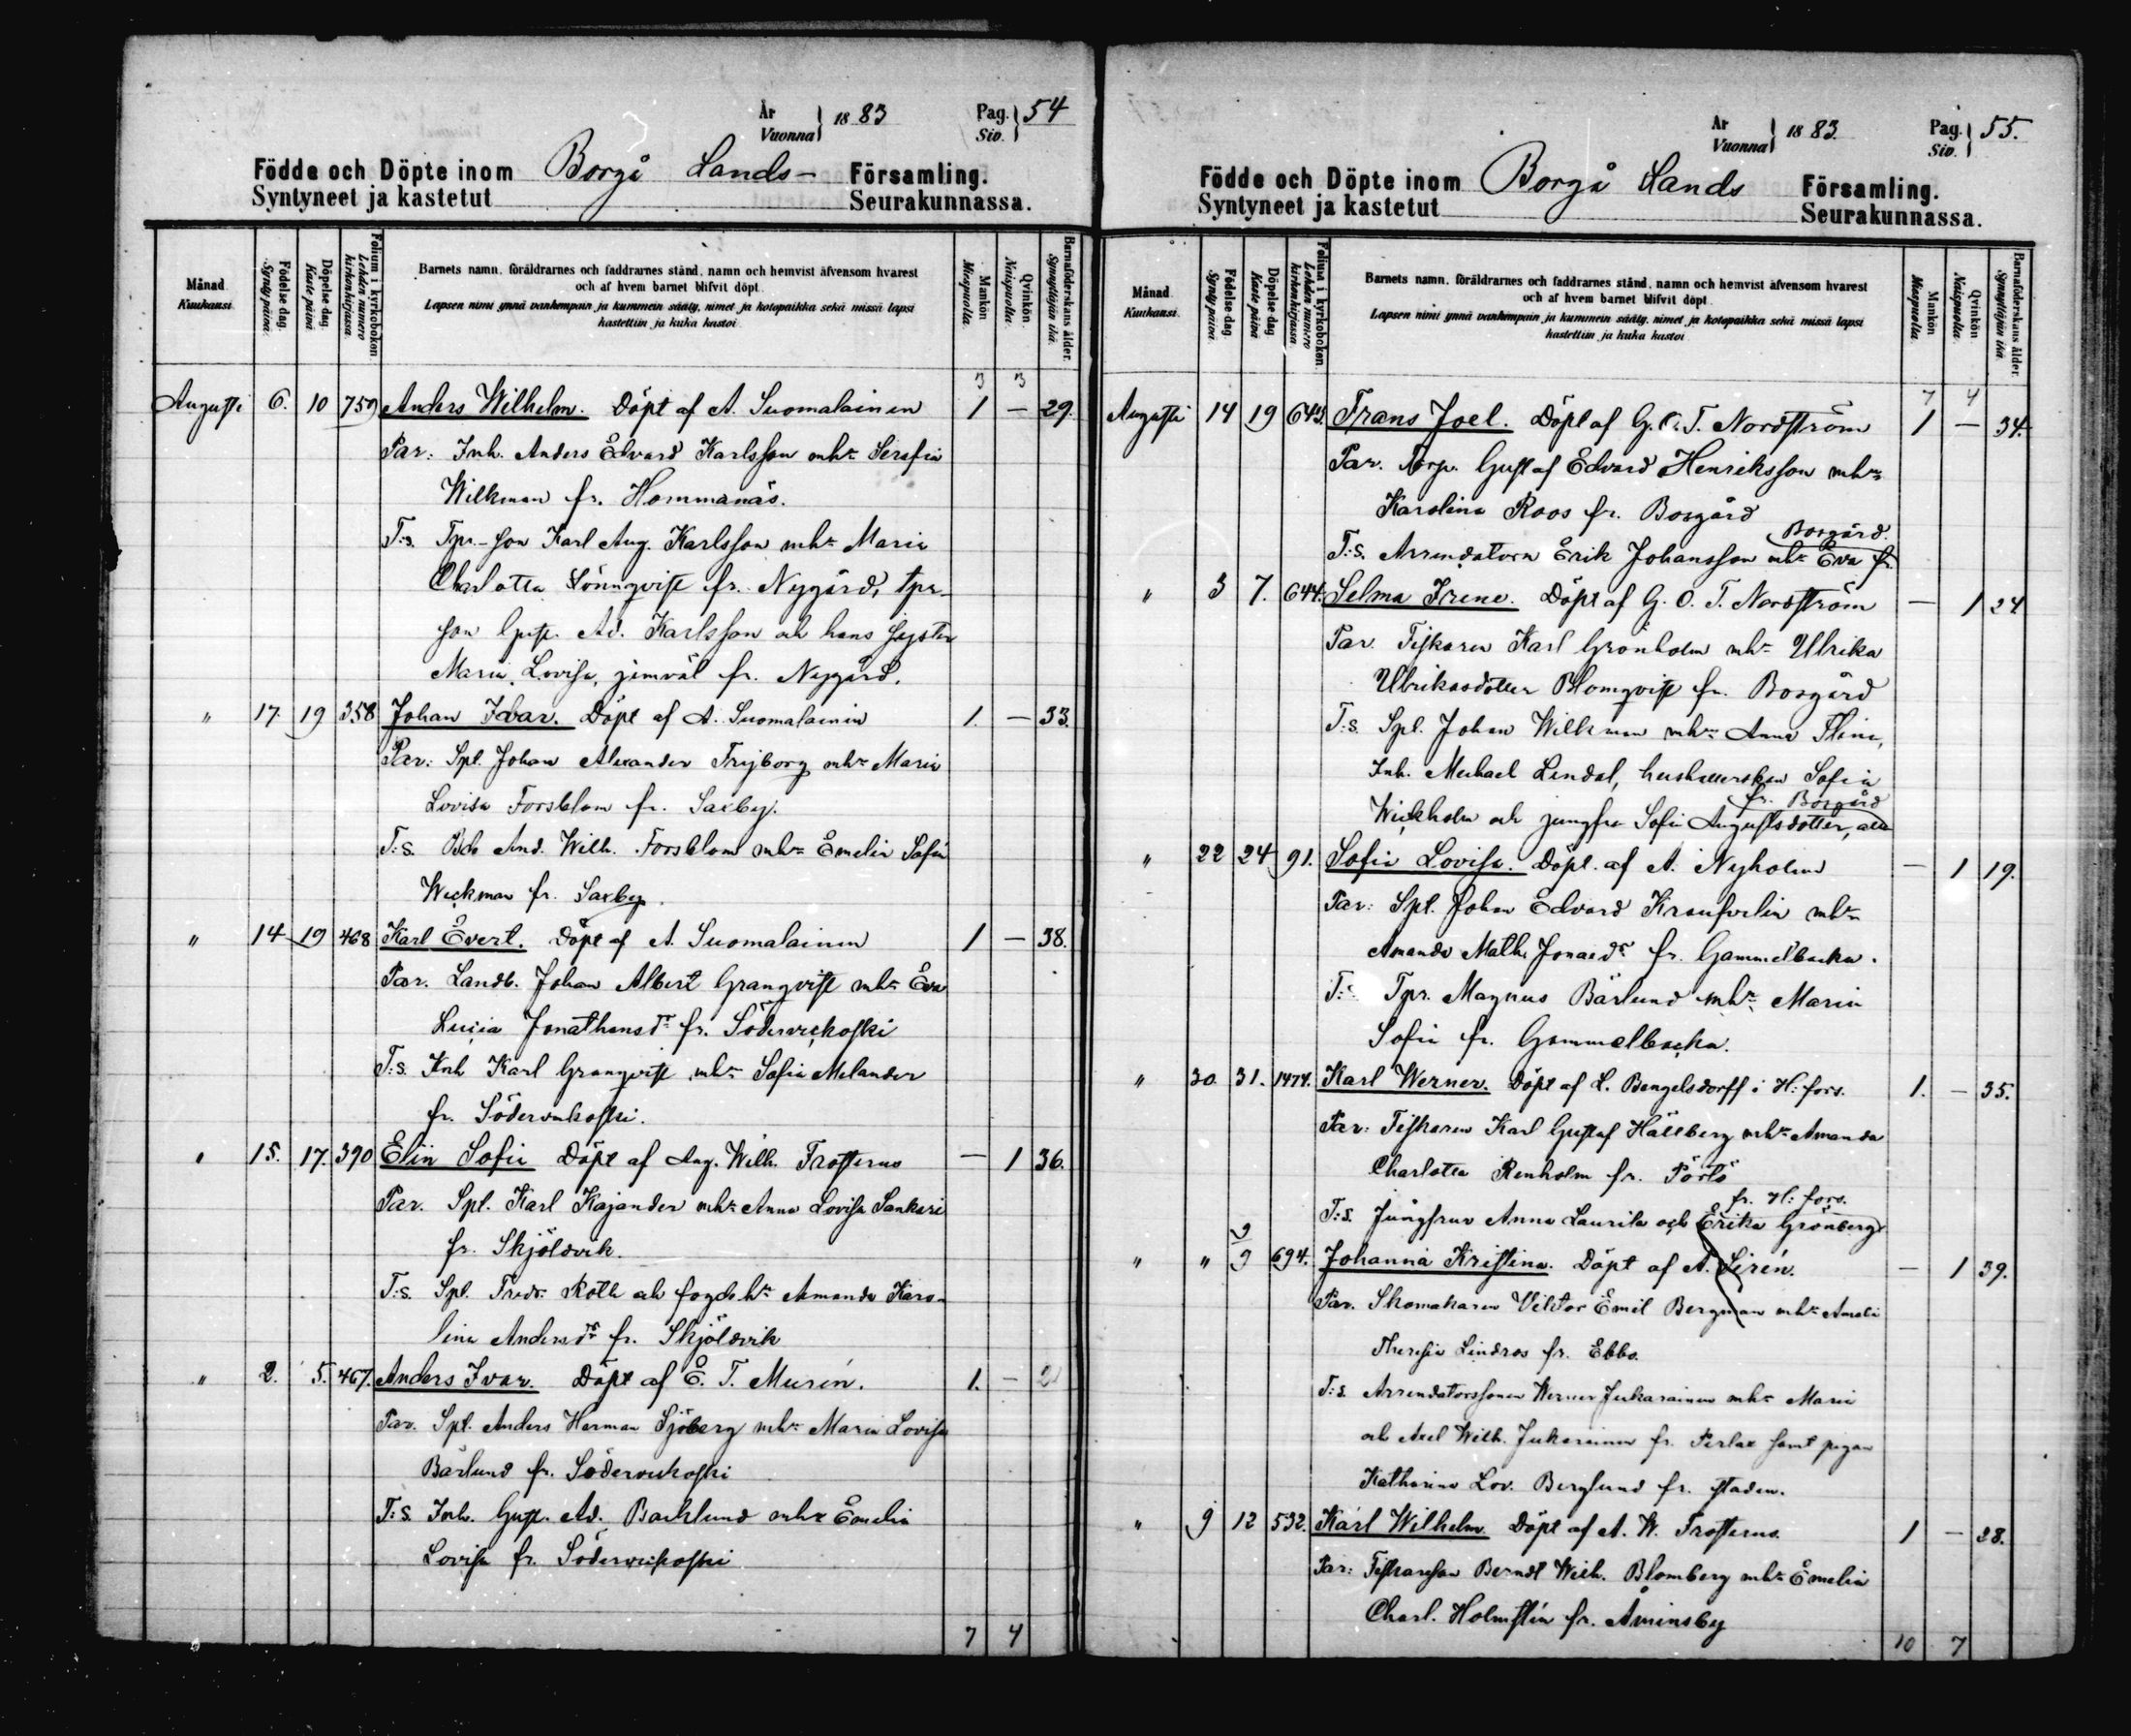 År
Vuonna } 1883 Pag.
Siv. } 54
Födde och Döpte inom Borgå Lands- Församling.
Syntyneet ja kastetut Seurakunnassa.
Månad
Kuukausi.
Födelse dag.
Synty päivä.
Döpelse dag.
Kaste päivä
Folium i kyrkoboken.
Lehden numero kirkonkirjassa.
Barnets namn, föräldrarnes och faddrarnes stånd, namn och hemvist äfvensom hvarest
och af hvem barnet blifvit döpt.
Lapsen nimi ynnä vanhempain ja kummein sääty, nimet ja kotopaikka sekä missä lapsi
kastettiin ja kuka kastoi.
Mankön
Miespuolta.
Qvinkön
Naispuolta.
Barnaföderskans ålder.
Synnyttäjän ikä.
3 3
Augusti 6. 10 759 Anders Wilhelm. Döpt af A. Suomalainen 1 — 29.
Par: Inh. Anders Edvard Karlsson mhr Serafia
Wilkman fr. Hommanäs.
T:s. Tpr-son Karl Aug. Karlsson mhr Maria
Charlotta Lönnqvist fr. Nygård, tpr-
son Gust. Ad. Karlsson och hans syster
Maria Lovisa, jemväl fr. Nygård.
" 17. 19 358 Johan Ivar. Döpt af A. Suomalainen 1. — 33.
Par: Spl. Johan Alexander Frijborg mhr Maria
Lovisa Forsblom fr. Saxby.
T:s. And. Wilh. Forsblom mhr Emelia Sofia
Weckman fr. Saxby.
" 14 19 468 Karl Evert. Döpt af A. Suomalainen 1 — 38.
Par. Landb. Johan Albert Granqvist mhr Eva
Lucia Jonathansdr fr. Söderveckoski
T:s. Inh Karl Granqvist mhr Sofia Melander
fr. Söderveckoski.
" 15. 17. 390 Elin Sofia Döpt af Aug. Wilh. Frosterus — 1 36.
Par. Spl. Karl Kajander mhr Anna Lovisa Sankari
fr. Skjöldvik.
T:s. Spl. Fredr. Roth och fogdehr Amanda Karo-
lina Andersdr fr. Skjöldvik
" 2. 5. 467. Anders Ivar. Döpt af E. T. Murén. 1. —
Par. Spl. Anders Herman Sjöberg mhr Maria Lovisa
Bärlund fr. Söderveckoski
T:s. Inh. Gust. Ad. Backlund mhr Emelia
Lovisa fr. Söderveckoski
7 4
År
Vuonna } 1883. Pag.
Siv. } 55.
Födde och Döpte inom Borgå Lands Församling.
Syntyneet ja kastetut Seurakunnassa.
Månad
Kuukausi.
Födelse dag.
Synty päivä.
Döpelse dag
Kaste päivä
Folium i kyrkoboken.
Lehden numero kirkonkirjassa.
Barnets namn, föräldrarnes och faddrarnes stånd, namn och hemvist äfvensom hvarest
och af hvem barnet blifvit döpt.
Lapsen nimi ynnä vanhempain ja kummein sääty, nimet ja kotopaikka sekä missä lapsi
kastettiin ja kuka kastoi
Mankön
Miespuolta.
Qvinkön
Naispuolta.
Barnaföderskans ålder.
Synnyttäjän ikä.
7 4
Augusti 14 19 643. Frans Joel. Döpt af G. O. T. Nordström 1 — 34.
Par. Torp. Gustaf Edvard Henriksson mhr
Karolina Roos fr. Bosgård
Bosgård.
T:s. Arrendatorn Erik Johansson mhr Eva fr.
" 3 7. 644. Selma Irene. Döpt af G. O. T. Nordström — 1 24
Par. Fiskaren Karl Grönholm mhr Ulrika
Ulrikasdotter Blomqvist fr. Bosgård
T:s. Spl. Johan Wilkman mhr Anna Stina,
Inh. Michael Lindal, hushållerskan Sofia
fr. Bosgård
Wickholm och jungfru Sofia Augustsdotter, alla
" 22 24 91. Sofia Lovisa. Döpt. af A. Nyholm — 1 19.
Par: Spl. Johan Edvard Kranferlin mhr
Amanda Math. Jonasdr fr. Gammelbacka.
T:s Tpr. Magnus Bärlund mhr Maria
Sofia fr. Gammelbacka.
" 30. 31. 1474. Karl Werner. Döpt af L. Bengelsdorff i H:fors. 1. — 35.
Par: Fiskaren Karl Gustaf Hällberg mhr Amanda
Charlotta Renholm fr. Pörtö
fr. H:fors.
T:s. Jungfrur Anna Laurila och Erika Grönberg
" " 9/9 694. Johanna Kristina. Döpt af A. Sirén. — 1 39.
Par. Skomakaren Viktor Emil Bergman mhr Amalia
Theresia Lindros fr. Ebbo.
T:s Arrendatorssonen Werner Jukarainen mhr Maria
och Axel Wilh. Jukarainen fr. Perlax samt pigan
Katharina Lov. Berglund fr. staden.
" 9 12 532. Karl Wilhelm. Döpt af A. W. Frosterus. 1 — 28.
Par: Fiskareson Berndt Wilh. Blomberg mhr Emelia
Charl. Holmstén fr. Åminsby
10 7